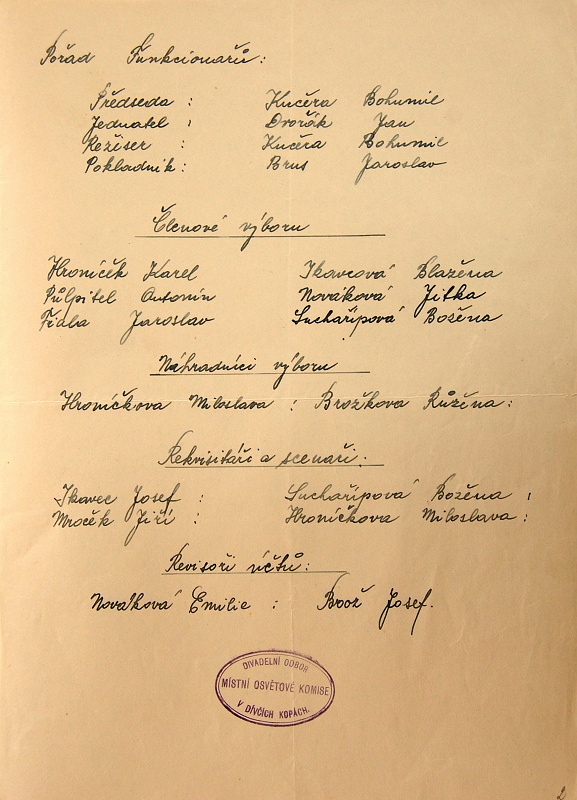 Pořad Funkcionářů:
Předseda : Kučera Bohumil
Jednatel : Dvořák Jan
Režiser : Kučera Bohumil
Pokladník: Brus Jaroslav
Členové výboru
Hroníček Karel Tkavcová Blažena
Půlpitel Antonín Nováková Jitka
Fiala Jaroslav Suchařípová Božena
Náhradníci výboru
Hroníčkova Miloslava : Brožkova Růžena:
Rekvisitáři a scenaři:
Tkavec Josef : Suchařípová Božena :
Mroček Jiří : Hroníčkova Miloslava :
Revisoři účtů:
Nováková Emilie : Brož Josef.
DIVADELNÍ ODBOR
MÍSTNÍ OSVĚTOVÉ KOMISE
V DÍVČÍCH KOPÁCH.
2